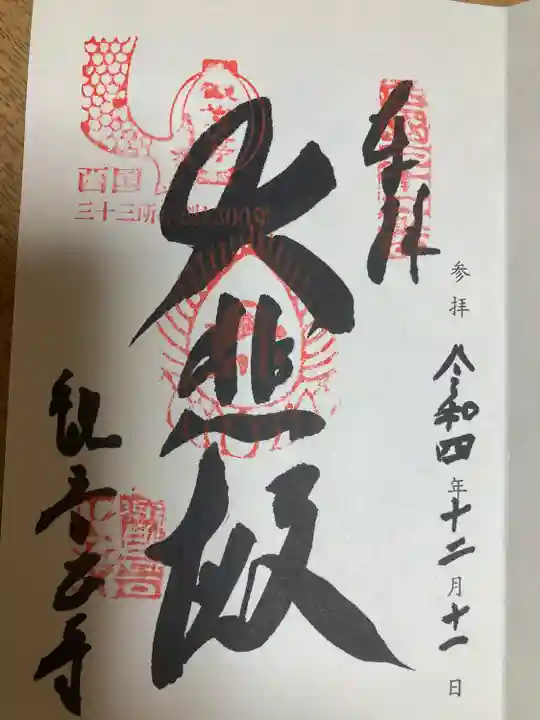 参拝 令和四年十二月十一日
奉拝
大悲殿
観音正寺
西国
三十三所